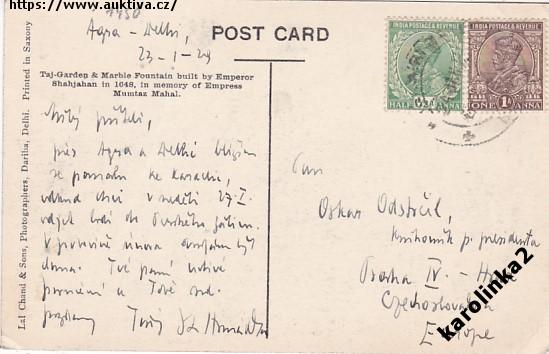 https://www.auktiva.cz/
Agra - Delhi,
23-1-29
POST CARD
INDIA POSTAGE & REVENUE
HALF ANNA
INDIA POSTAGE & REVENUE
ONE 1A ANNA
Taj-Garden & Marble Fountain built by Emperor
Shahjahan in 1648, in memory of Empress
Mumtaz Mahal.
Lal Chand & Sons, Photographers, Dariba, Delhi. Printed in Saxony
Milý příteli,
přes Agra a Delhi blížím
se pomalu ke Karachi,
odkud chci v neděli 27.I.
odjet lodí do Perského zálivu.
V polovině února
doma. Tvé paní uctivé
poručení a Tobě srd.
pozdravy Tvůj
Pan
Oskar Odstrčil,
knihovník p. presidenta
Praha IV. - Hrad
Czechoslovakia
Europe
karolinka2